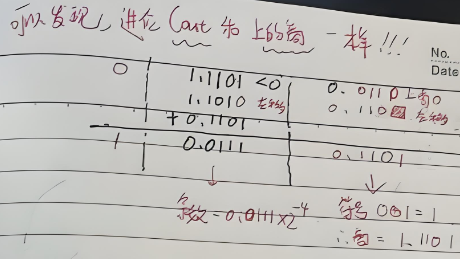 可以发现,进位Cout和上的商一样!!!
No.
Date
0 1.1101 <0 0.0110上商0
1.1010 左移 0.110 左移
+0.1101
1 0.0111 0.1101
↓ ↓
余数=0.0111×2^-4 符号 0⊕1=1
∴商=1.1101